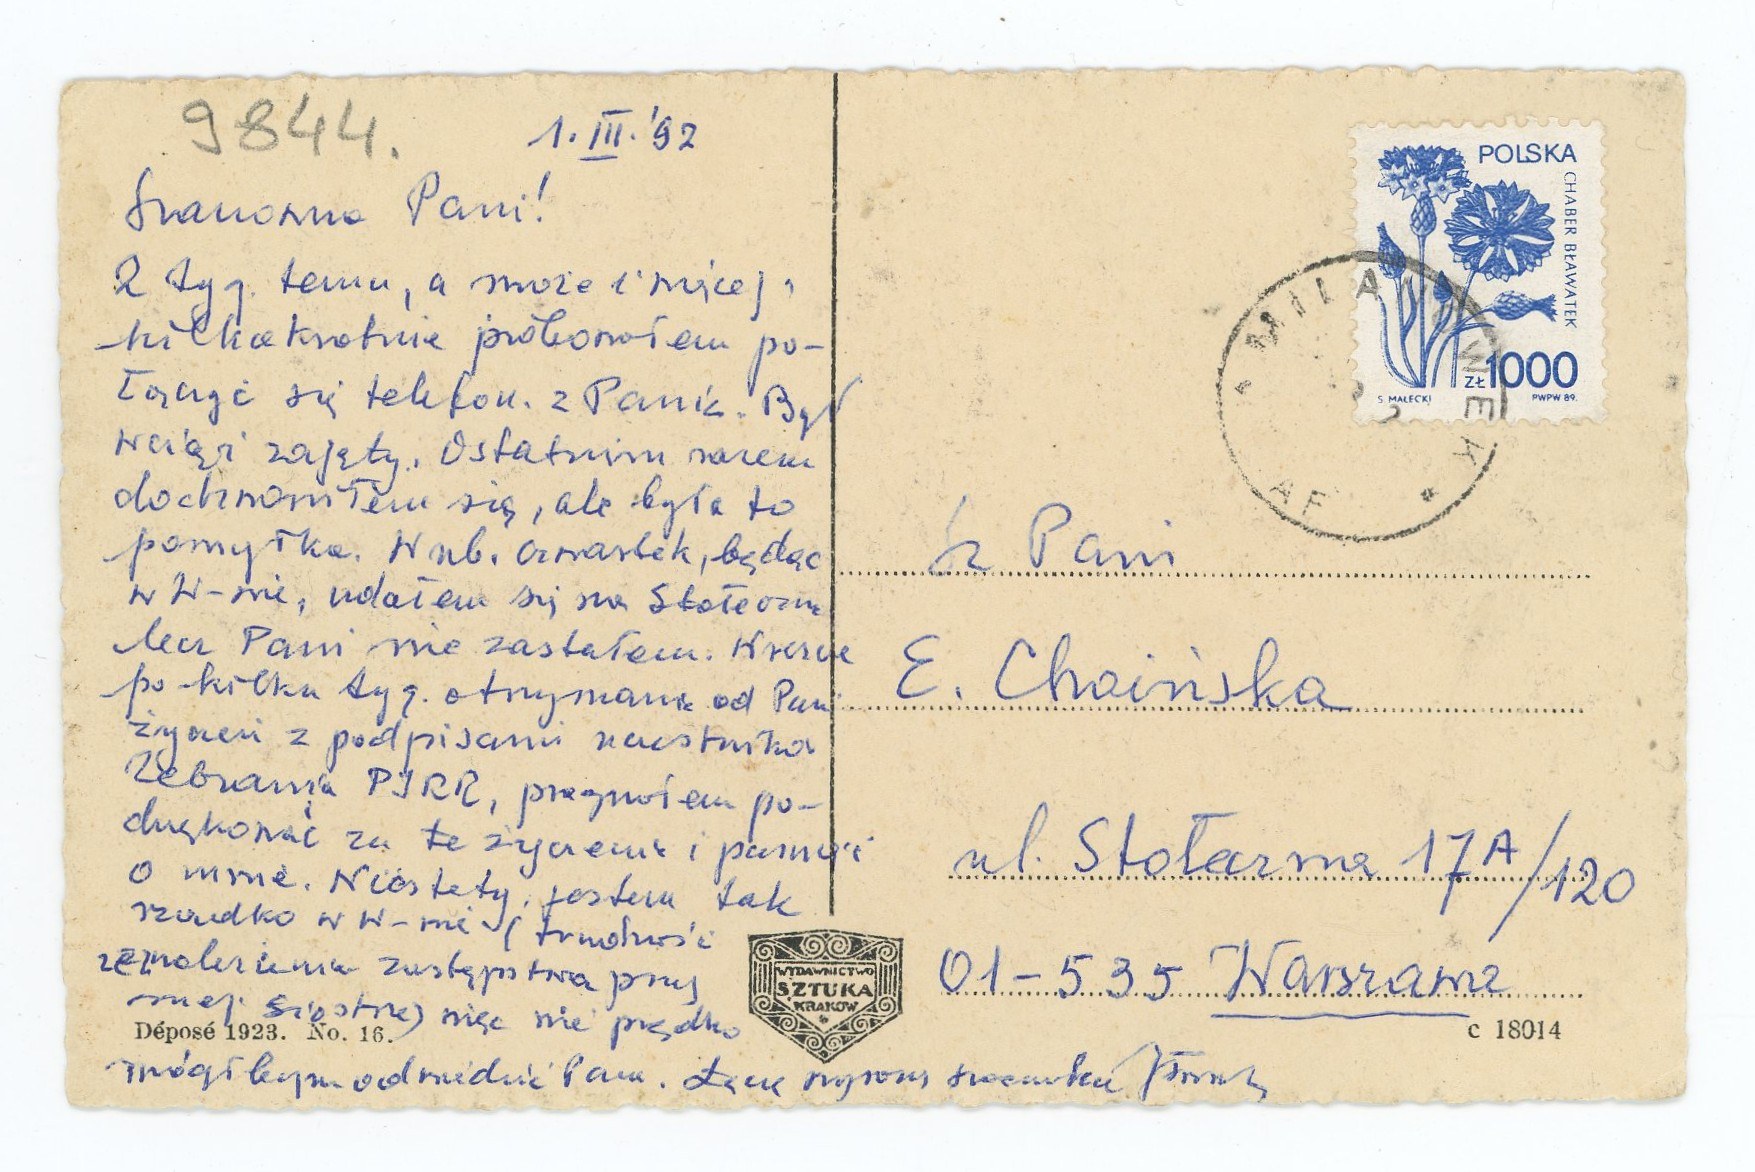 9844.
1. III. '92
Szanowna Pani!
2 tyg. temu, a może i więcej,
kilkakrotnie próbowałem po-
łączyć się telefon. z Panią. Był
wciąż zajęty. Ostatnim razem
dodzwoniłem się, ale była to
pomyłka. W ub. czwartek, będąc
w W-wie, udałem się na Stołeczną
lecz Pani nie zastałem. Wreszcie
po kilku tyg. otrzymane od Pani
życzeń z podpisami uczestników
Zebrania PTRR, pragnąłem po-
dziękować za te życzenia i pamięć
o mnie. Niestety, jestem tak
rzadko w W-wie (trudność
znalezienia zastępstwa przy
mej siostrze) więc nie prędko
mógłbym odwiedzić Panią. Łączę wyrazy szacunku
POLSKA
CHABER BŁAWATEK
ZŁ 1000
S. MAŁECKI
PWPW 89.
MILANÓWEK
AF
Sz Pani
E. Choińska
ul. Stołeczna 17A/120
01-535 Warszawa
WYDAWNICTWO
SZTUKA
KRAKÓW
Déposé 1923. No. 16.
c 18014